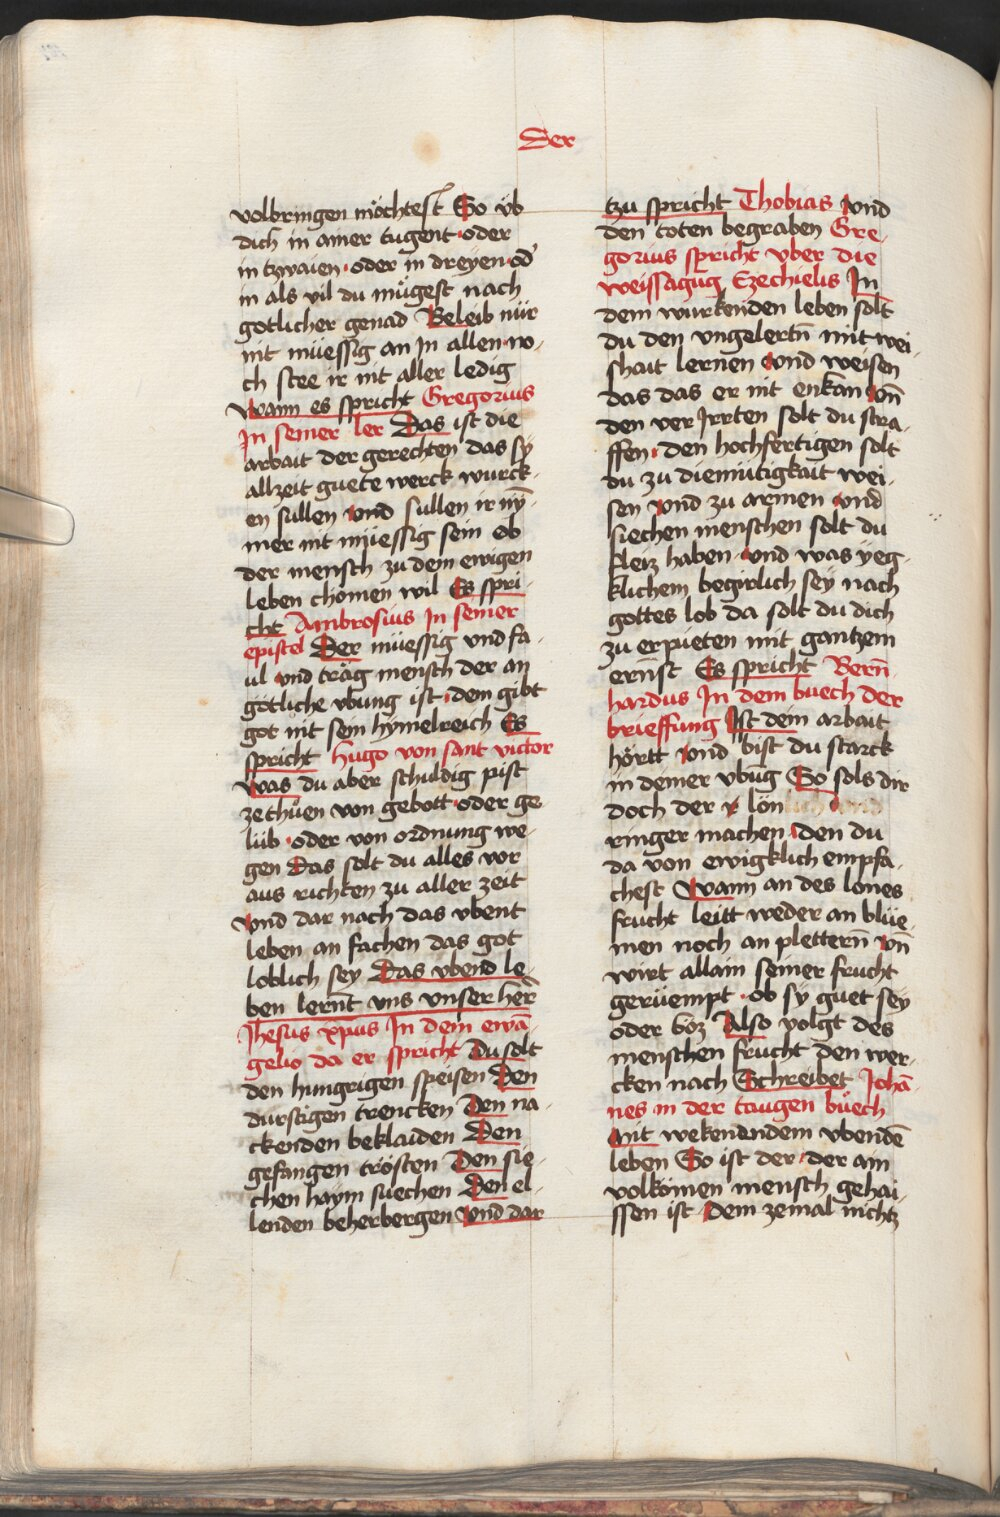 Der
volbringen möchtest So üb
dich in ainer tugent · oder
in tzwaien · oder in dreyen · od'
in als vil du mügest nach
gotlicher genad Beleib nür
nit müessig an In allen no-
ch stee ir nit aller ledig
Wann es spricht Gregorius
In seiner ler Das ist die
arbait der gerechten das sy
allzeit guete werck wurck-
en sullen vnd sullen ir nȳ-
mer nit müessig sein ob
der mensch zu dem ewigen
leben chömen wil Es spri-
cht Ambrosius In seiner
epistel Der müessig vnd fa-
ul vnd träg mensch der an
götliche vbung ist · dem gibt
got nit sein hymelreich Es
spricht Hugo von sant victor
Was du aber schuldig pist
ze thuen von gebott · oder ge-
lüb · oder von ordnung we-
gen Das solt du alles vor
aus richten zu aller zeit
Vnd dar nach das vbent
leben an fachen das got
loblich sey Das vbend le-
ben lernt vns vnser her̄
Jhesus xp̄us In dem ewā-
gelio da er spricht Du solt
den hungrigen speisen Den
durstigen trencken Den na-
ckenden beklaiden Den
gefangen trösten Den sie-
chen haym suechen Den el-
lenden beherbergen Vnd dar
tzu spricht Thobias Vnd
den toten begraben Gre-
gorius spricht vber die
weissagūg Ezechielis In
dem wurkenden leben solt
du den vngelertn̄ mit wei-
shait lernen Vnd weisen
das das er nit enkan Vn̄
den ver Irrten solt du stra-
ffen · den hochfertigen solt
du zu diemütigkait wei-
sen Vnd zu armen Vnd
siechen menschen solt du
fleiz haben Vnd was yeg-
klichem begirlich sey nach
gottes lob da solt du dich
zu erpueten mit gantzem
ernnst Es spricht Bern̄-
hardus In dem buech der
brieffung Ist dein arbait
hörtt Vnd bist du starck
in deiner vbūg So sols dir
doch der lön
ringer machen · den du
da von ewigklich empfa-
chest Wann an des lones
frucht leitt weder an blüe-
men noch an plettern̄ Vn̄
wirt allain seiner frucht
gerüempt · ob sy guet sey
oder böz Also volgt des
menschen frucht den wer-
cken nach Schreibet Johā-
nes in der taugen büech
Mit wekenandem vbendē
leben So ist der · der ain
volkömen mensch gehai-
ssen ist Dem zemal nichtz